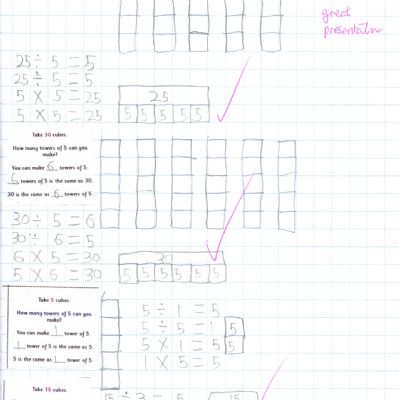 great
presentation
25 ÷ 5 = 5
25 ÷ 5 = 5
5 × 5 = 25
5 × 5 = 25
25
5 5 5 5 5
Take 30 cubes.
How many towers of 5 can you
make?
You can make 6 towers of 5.
6 towers of 5 is the same as 30.
30 is the same as 6 towers of 5.
30 ÷ 5 = 6
30 ÷ 6 = 5
6 × 5 = 30
5 × 6 = 30
30
5 5 5 5 5 5
Take 5 cubes
How many towers of 5 can you
make?
You can make 1 tower of 5.
1 tower of 5 is the same as 5.
5 is the same as 1 tower of 5.
5 ÷ 1 = 5
5 ÷ 5 = 1
5 × 1 = 5
1 × 5 = 5
5
5
Take 15 cubes.
15 ÷ 3 = 5
15